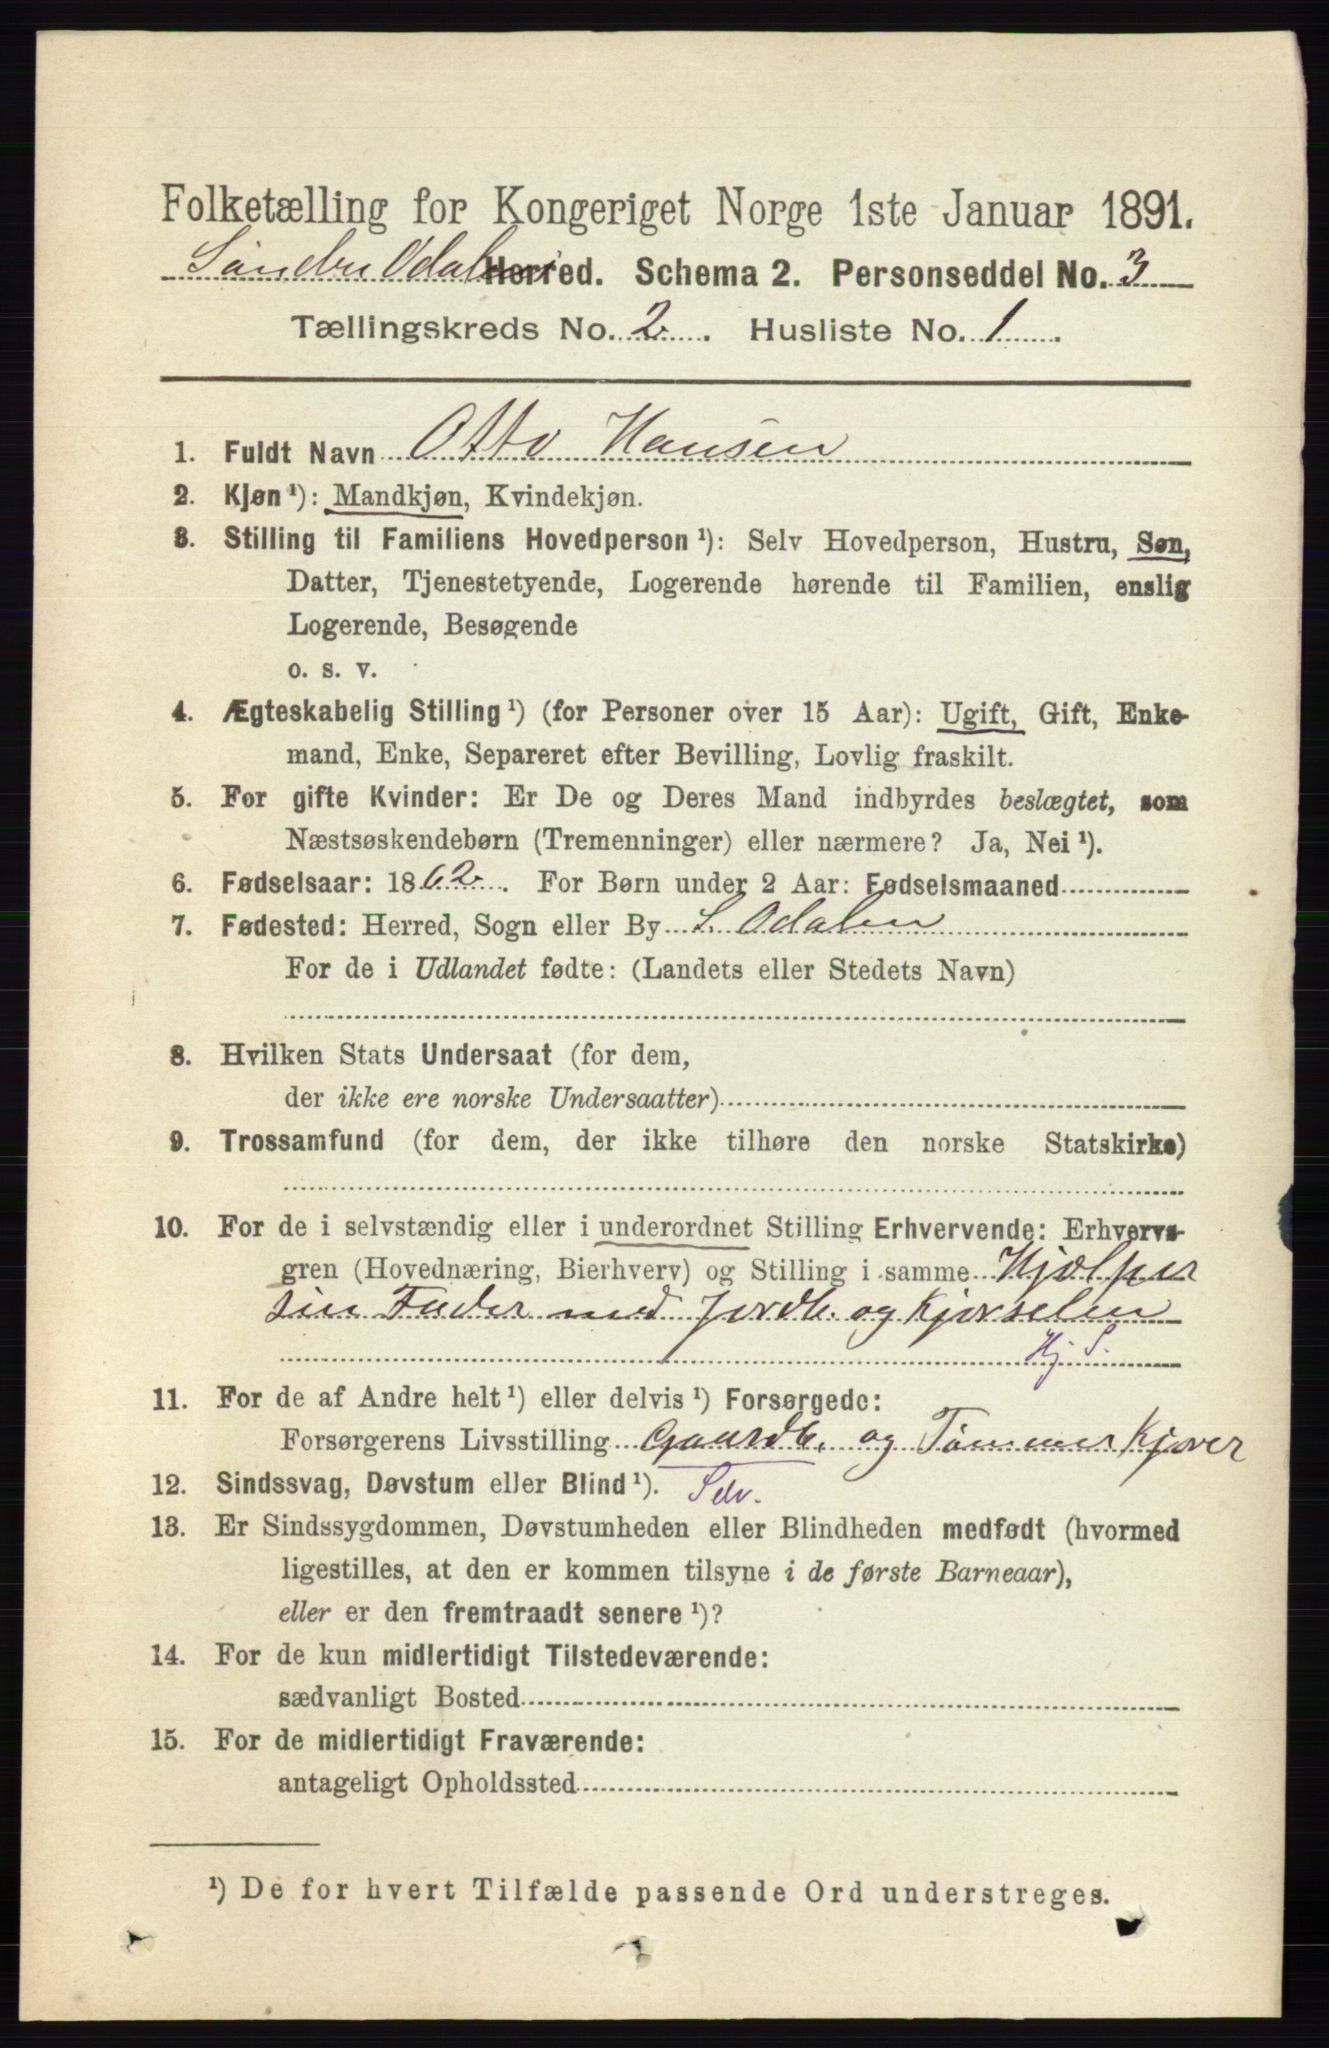 Folketælling for Kongeriget Norge 1ste Januar 1891.
Søndre Odalen Herred. Schema 2. Personseddel No. 3
Tællingskreds No. 2. Husliste No. 1.
1. Fuldt Navn Otto Hansen
2. Kjøn ¹): Mandkjøn, Kvindekjøn.
3. Stilling til Familiens Hovedperson ¹): Selv Hovedperson, Hustru, Søn,
Datter, Tjenestetyende, Logerende hørende til Familien, enslig
Logerende, Besøgende
o. s. v.
4. Ægteskabelig Stilling ¹) (for Personer over 15 Aar): Ugift, Gift, Enke-
mand, Enke, Separeret efter Bevilling, Lovlig fraskilt.
5. For gifte Kvinder: Er De og Deres Mand indbyrdes beslægtet, som
Næstsøskendebørn (Tremenninger) eller nærmere? Ja, Nei ¹).
6. Fødselsaar: 1862. For Børn under 2 Aar: Fødselsmaaned
7. Fødested: Herred, Sogn eller By S. Odalen
For de i Udlandet fødte: (Landets eller Stedets Navn)
8. Hvilken Stats Undersaat (for dem,
der ikke ere norske Undersaatter)
9. Trossamfund (for dem, der ikke tilhøre den norske Statskirke)
10. For de i selvstændig eller i underordnet Stilling Erhvervende: Erhvervs-
gren (Hovednæring, Bierhverv) og Stilling i samme Hjælper
sin Fader med Jordb. og Kjørselen
Hj. S.
11. For de af Andre helt ¹) eller delvis ¹) Forsørgede:
Forsørgerens Livsstilling Gaardb. og Tømmer Kjører
12. Sindssvag, Døvstum eller Blind ¹). Selv.
13. Er Sindssygdommen, Døvstumheden eller Blindheden medfødt (hvormed
ligestilles, at den er kommen tilsyne i de første Barneaar),
eller er den fremtraadt senere ¹)?
14. For de kun midlertidigt Tilstedeværende:
sædvanligt Bosted
15. For de midlertidigt Fraværende:
antageligt Opholdssted
¹) De for hvert Tilfælde passende Ord understreges.